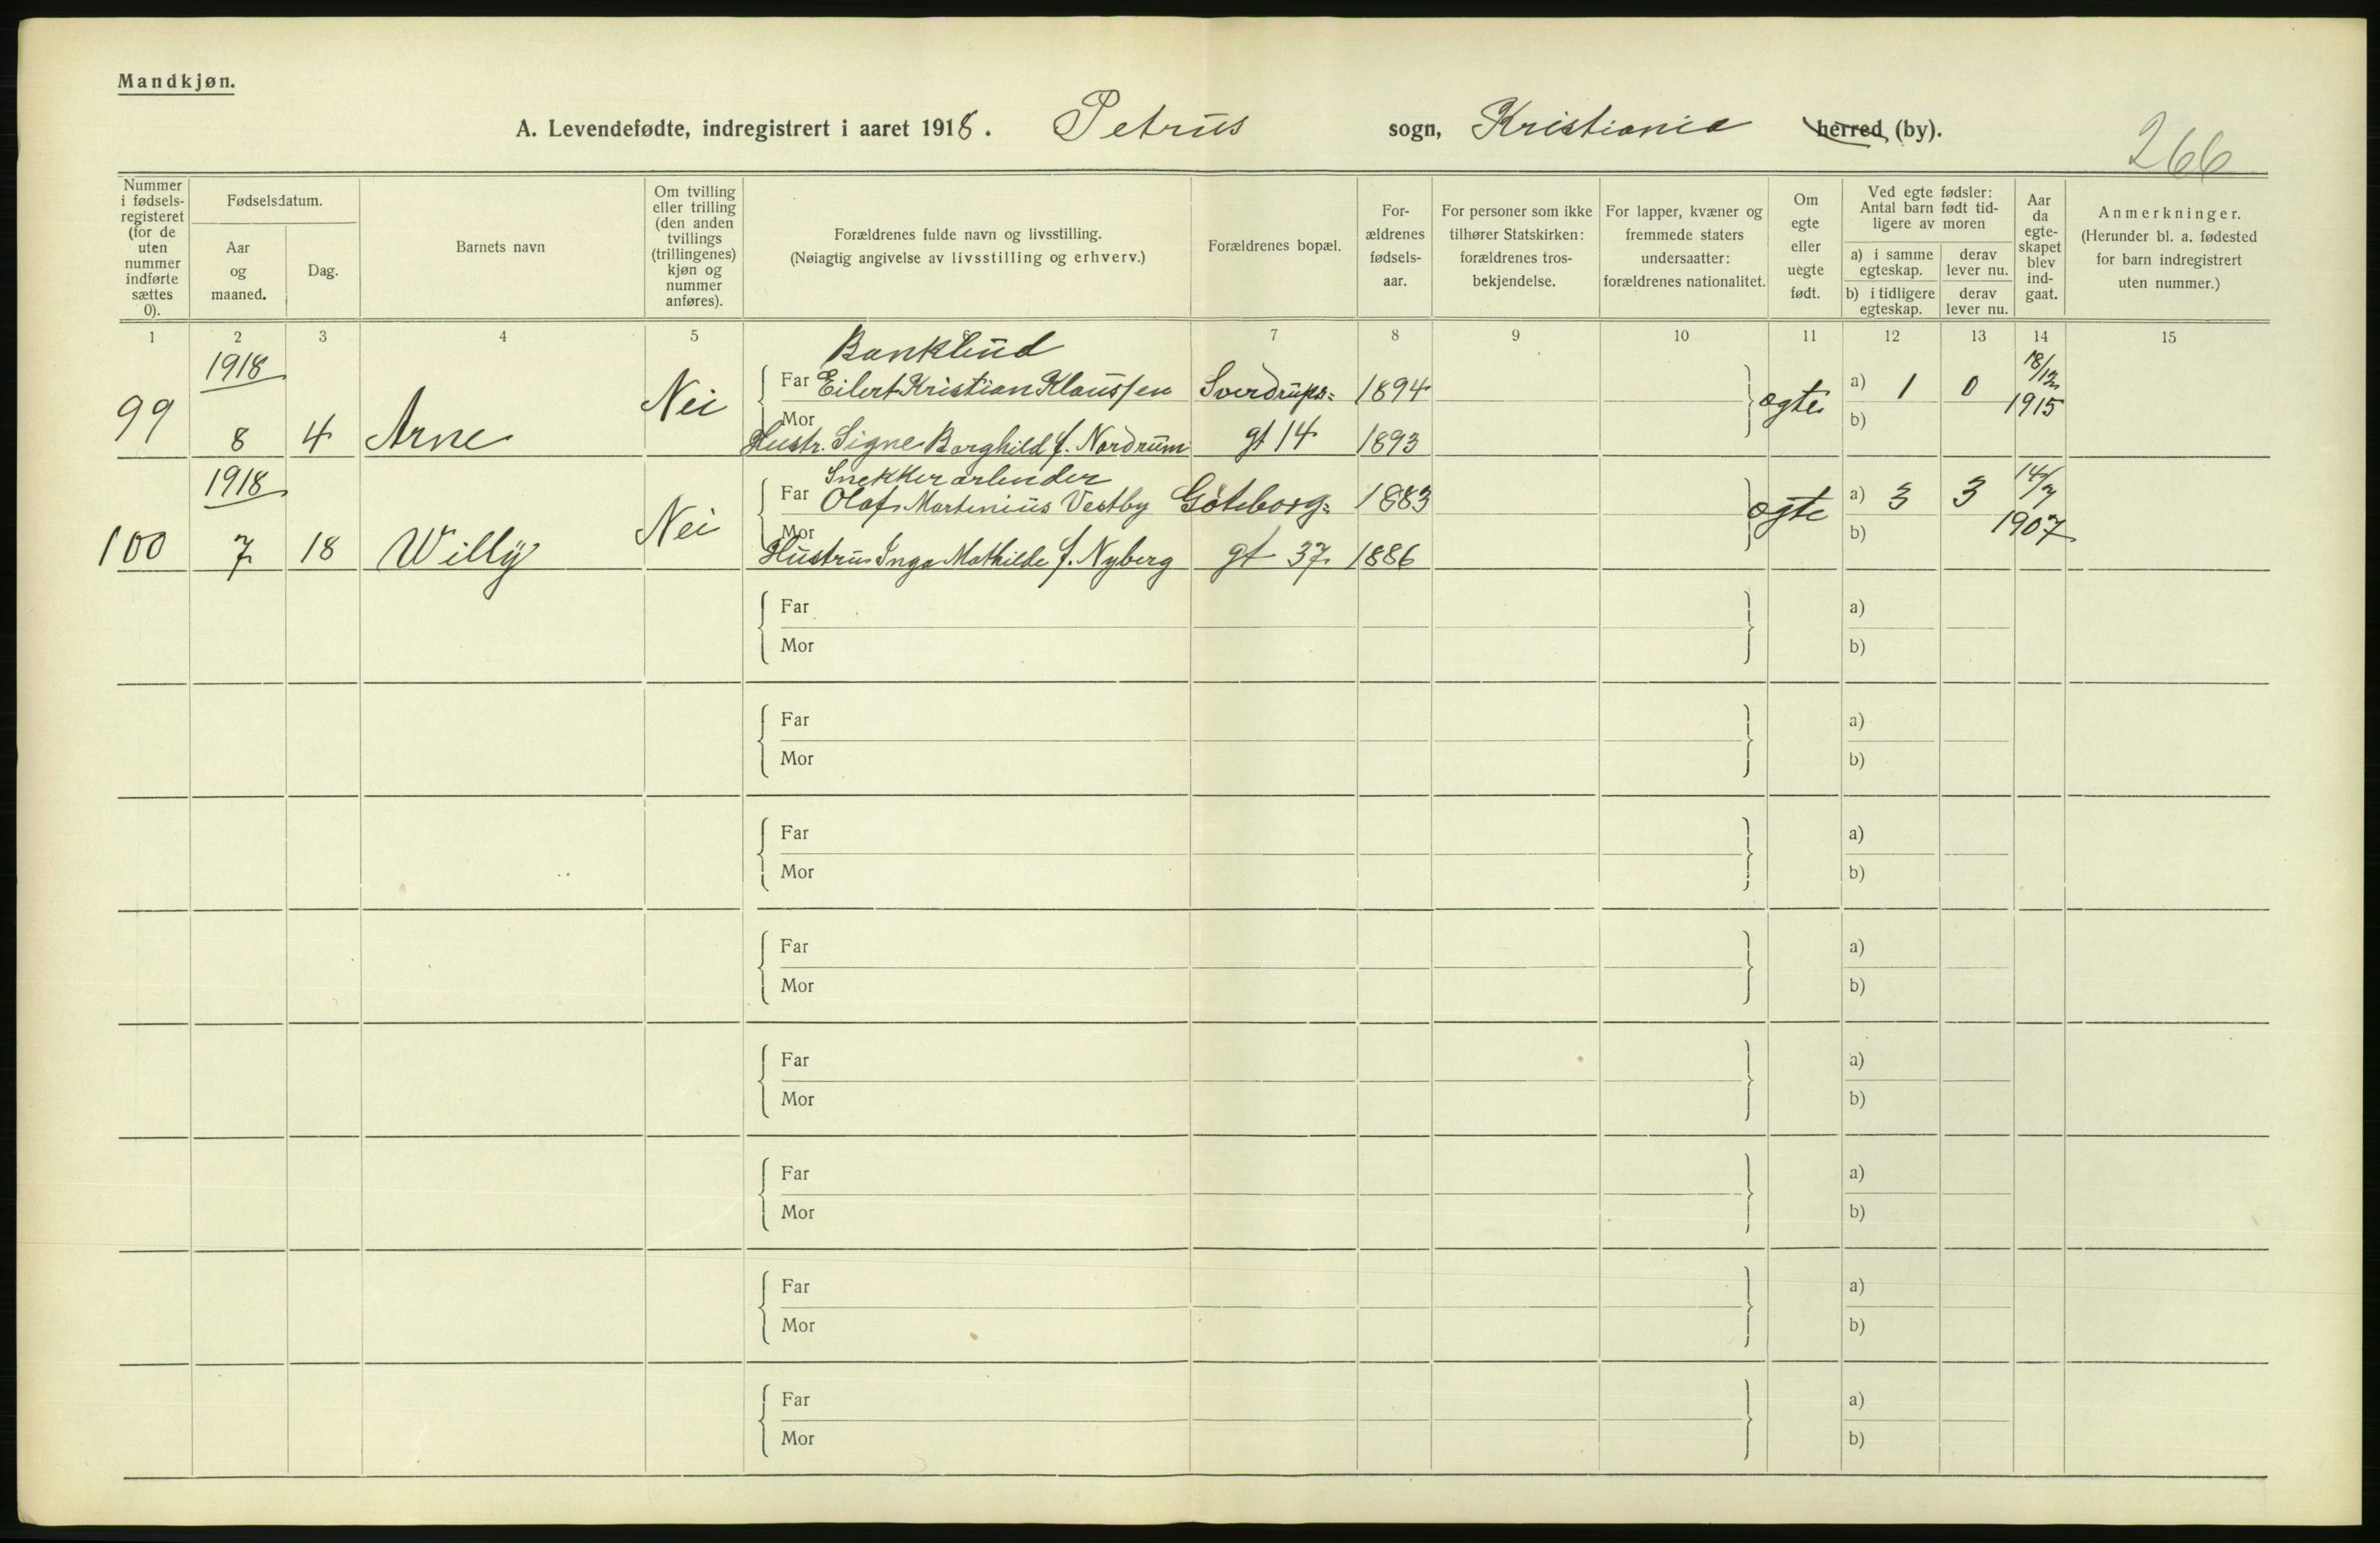 Mandkjøn.
A. Levendefødte, indregistrert i aaret 1918. Petrus sogn, Kristiania herred (by).
266
Nummer i fødsels-registeret (for de uten nummer indførte sættes 0).
Fødselsdatum.
Aar og maaned.
Dag.
Barnets navn
Om tvilling eller trilling (den anden tvillings (trillingenes) kjøn og nummer anføres).
Forældrenes fulde navn og livsstilling.
(Nøiagtig angivelse av livsstilling og erhverv.)
Forældrenes bopæl.
For-ældrenes fødsels-aar.
For personer som ikke tilhører Statskirken: forældrenes tros-bekjendelse.
For lapper, kvæner og fremmede staters undersaatter: forældrenes nationalitet.
Om egte eller uegte født.
Ved egte fødsler: Antal barn født tid-ligere av moren
a) i samme egteskap.
derav lever nu.
b) i tidligere egteskap.
derav lever nu.
Aar da egte-skapet blev ind-gaat.
Anmerkninger.
(Herunder bl. a. fødested for barn indregistrert uten nummer.)
1 2 3 4 5 6 7 8 9 10 11 12 13 14 15
1918 Bankbud 18/12
99 8 4 Arne Nei Far Eilert Kristian Klaussen Sverdrups= 1894 egte a) 1 0 1915
Mor Hustr. Signe Borghild f. Nordrum gt 14 1893 b)
1918 Snekkerarbeider 14/7
100 7 18 Willy Nei Far Olaf Martinius Vestby Göteborg= 1883 egte a) 3 3 1907
Mor Hustru Inga Mathilde f. Nyberg gt 37 1886 b)
Far a)
Mor b)
Far a)
Mor b)
Far a)
Mor b)
Far a)
Mor b)
Far a)
Mor b)
Far a)
Mor b)
Far a)
Mor b)
Far a)
Mor b)